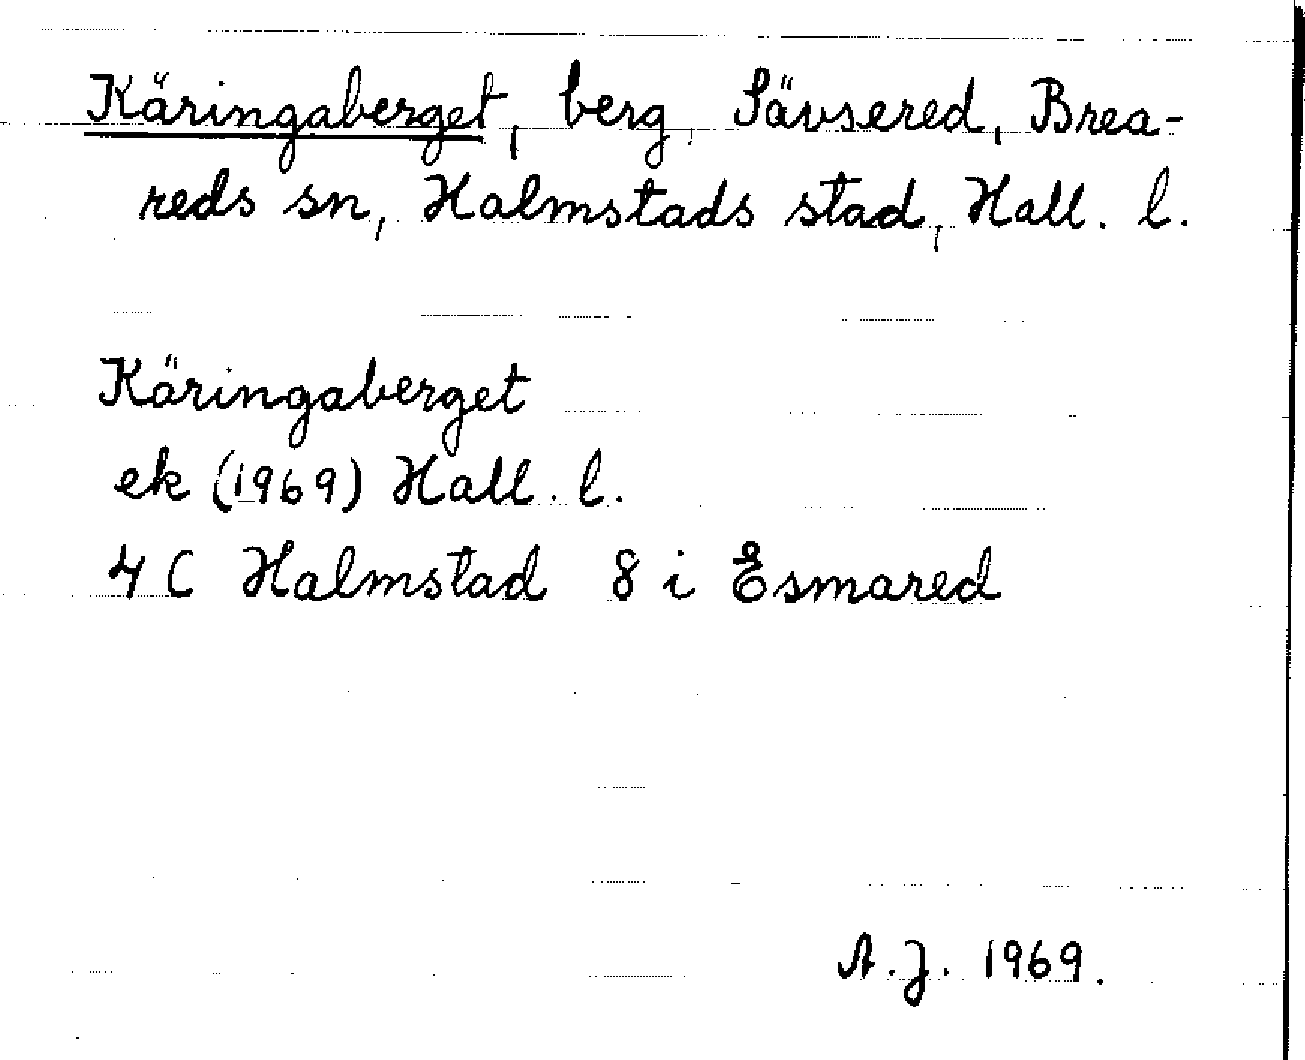 Käringaberget, berg, Sävsered, Brea-
reds sn, Halmstads stad, Hall. l.
Käringaberget
ek (1969) Hall. l.
4 C Halmstad 8 i Esmared
A.J. 1969.